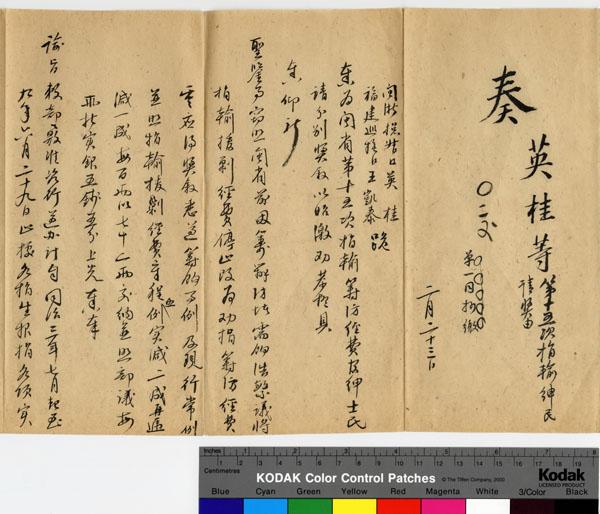 奏
英桂等
第十五次捐輸紳民
請奬由
二月二十三日
閩浙總督臣英桂
福建巡撫臣王凱泰跪
奏為閩省第十五次捐輸籌防經費官紳士民
請分別奬敘以昭激勸恭摺具
奏仰祈
聖鑒事竊照閩省前因籌辦防堵需餉浩繁議將
捐輸援剿經費停止改為勸捐籌防經費
並照捐輸援剿經費章程例實減二成再遞
減一成每百兩以七十二兩交納並照部議每
諭旨
同治三年七月起至
九年六月二十九日止據各捐生報捐各項實
Inches
Centimetres
KODAK Color Control Patches
© The Tiffen Company, 2000
Kodak
LICENSED PRODUCT
Blue Cyan Green Yellow Red Magenta White 3/Color Black